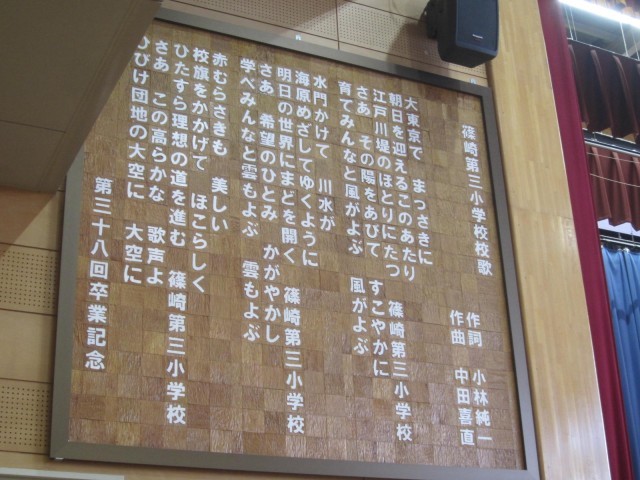 篠崎第三小学校校歌
作詞 小林純一
作曲 中田喜直
大東京で まっさきに
朝日を迎えるこのあたり
江戸川堤のほとりにたつ 篠崎第三小学校
さあ その陽をあびて すこやかに
育てみんなと風がよぶ 風がよぶ
水門かけて 川水が
海原めざしてゆくように
明日の世界にまどを開く 篠崎第三小学校
さあ 希望のひとみ かがやかし
学べみんなと雲もよぶ 雲もよぶ
赤むらさきも 美しい
校旗をかかげて ほこらしく
ひたすら理想の道を進む 篠崎第三小学校
さあ この高らかな 歌声よ
ひびけ団地の大空に 大空に
第三十八回卒業記念